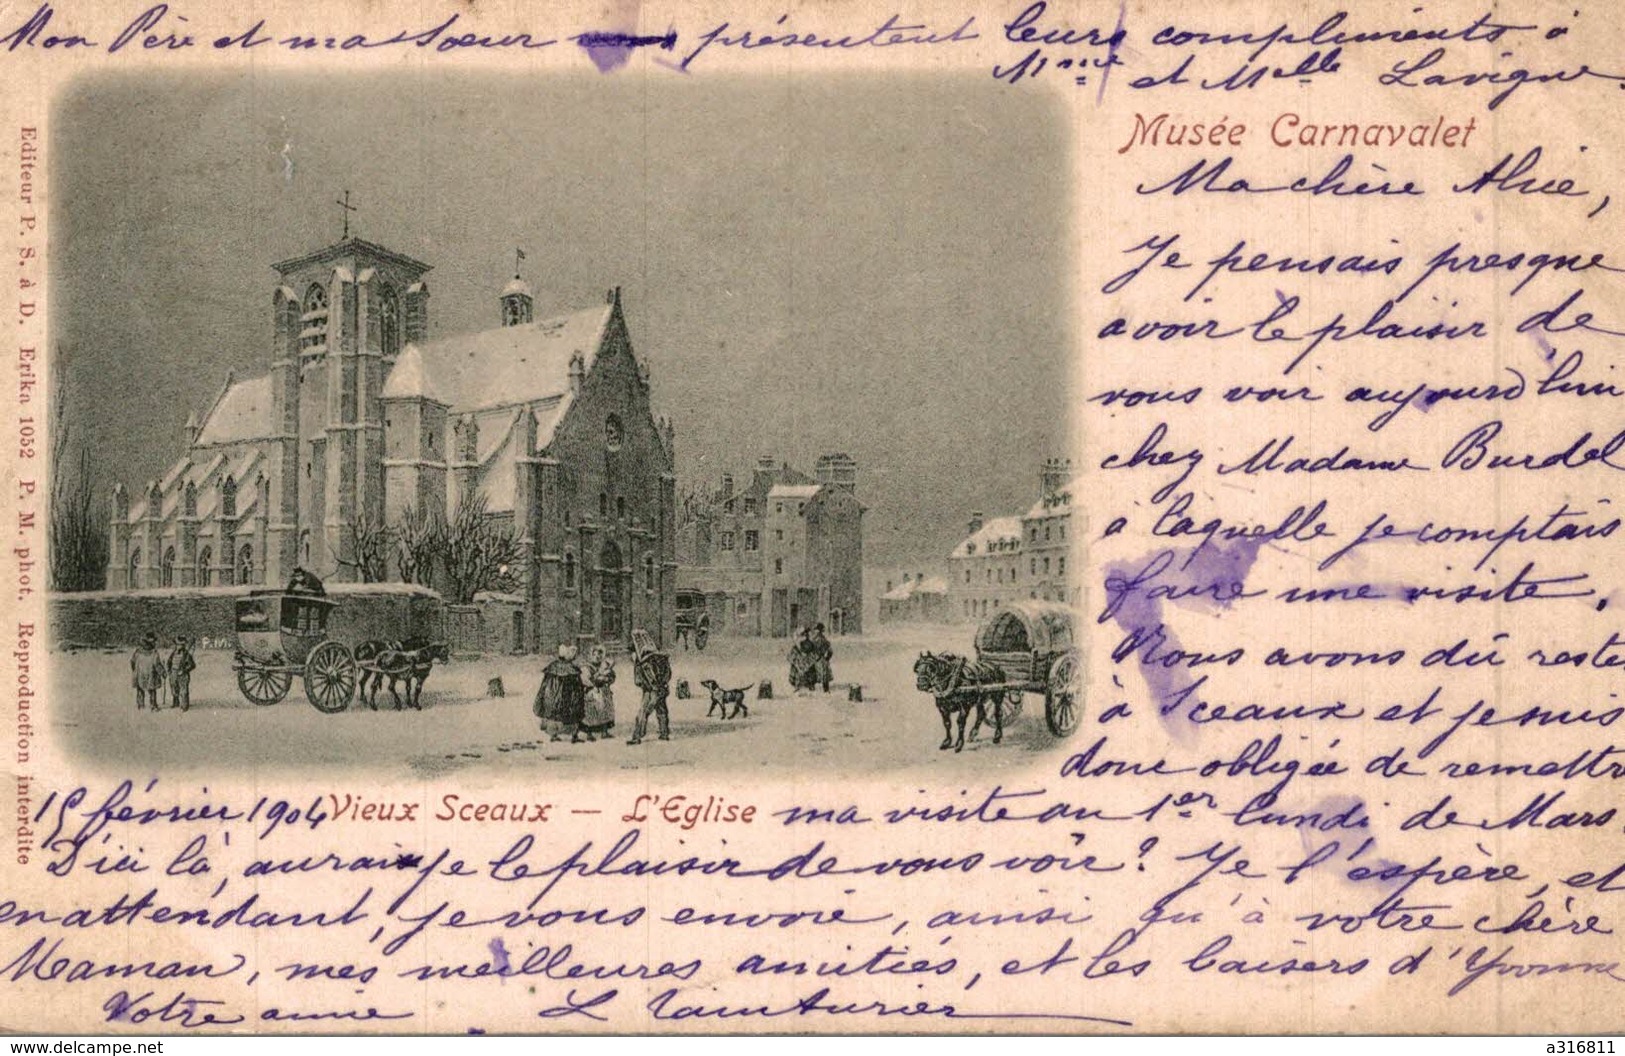 Mon Père et ma Soeur présentent leurs compliments à
Mme et Melle Lavigne.
Musée Carnavalet
Ma chère Alice,
Je pensais presque
avoir le plaisir de
vous voir aujourd'hui
chez Madame Burdel
à laquelle je comptais
faire une visite.
Nous avons dû rester
à Sceaux et je suis
donc obligée de remettre
15 février 1904 Vieux Sceaux — L'Eglise ma visite au 1er lundi de Mars.
D'ici là, aurai-je le plaisir de vous voir? Je l'espère, et
en attendant, je vous envoie, ainsi qu'à votre chère
Maman, mes meilleures amitiés, et les baisers d'Yvonne
Votre amie L
Editeur P. S. à D. Erika 1052 P. M. phot. Reproduction interdite
P.M.
https://www.delcampe.net
a316811